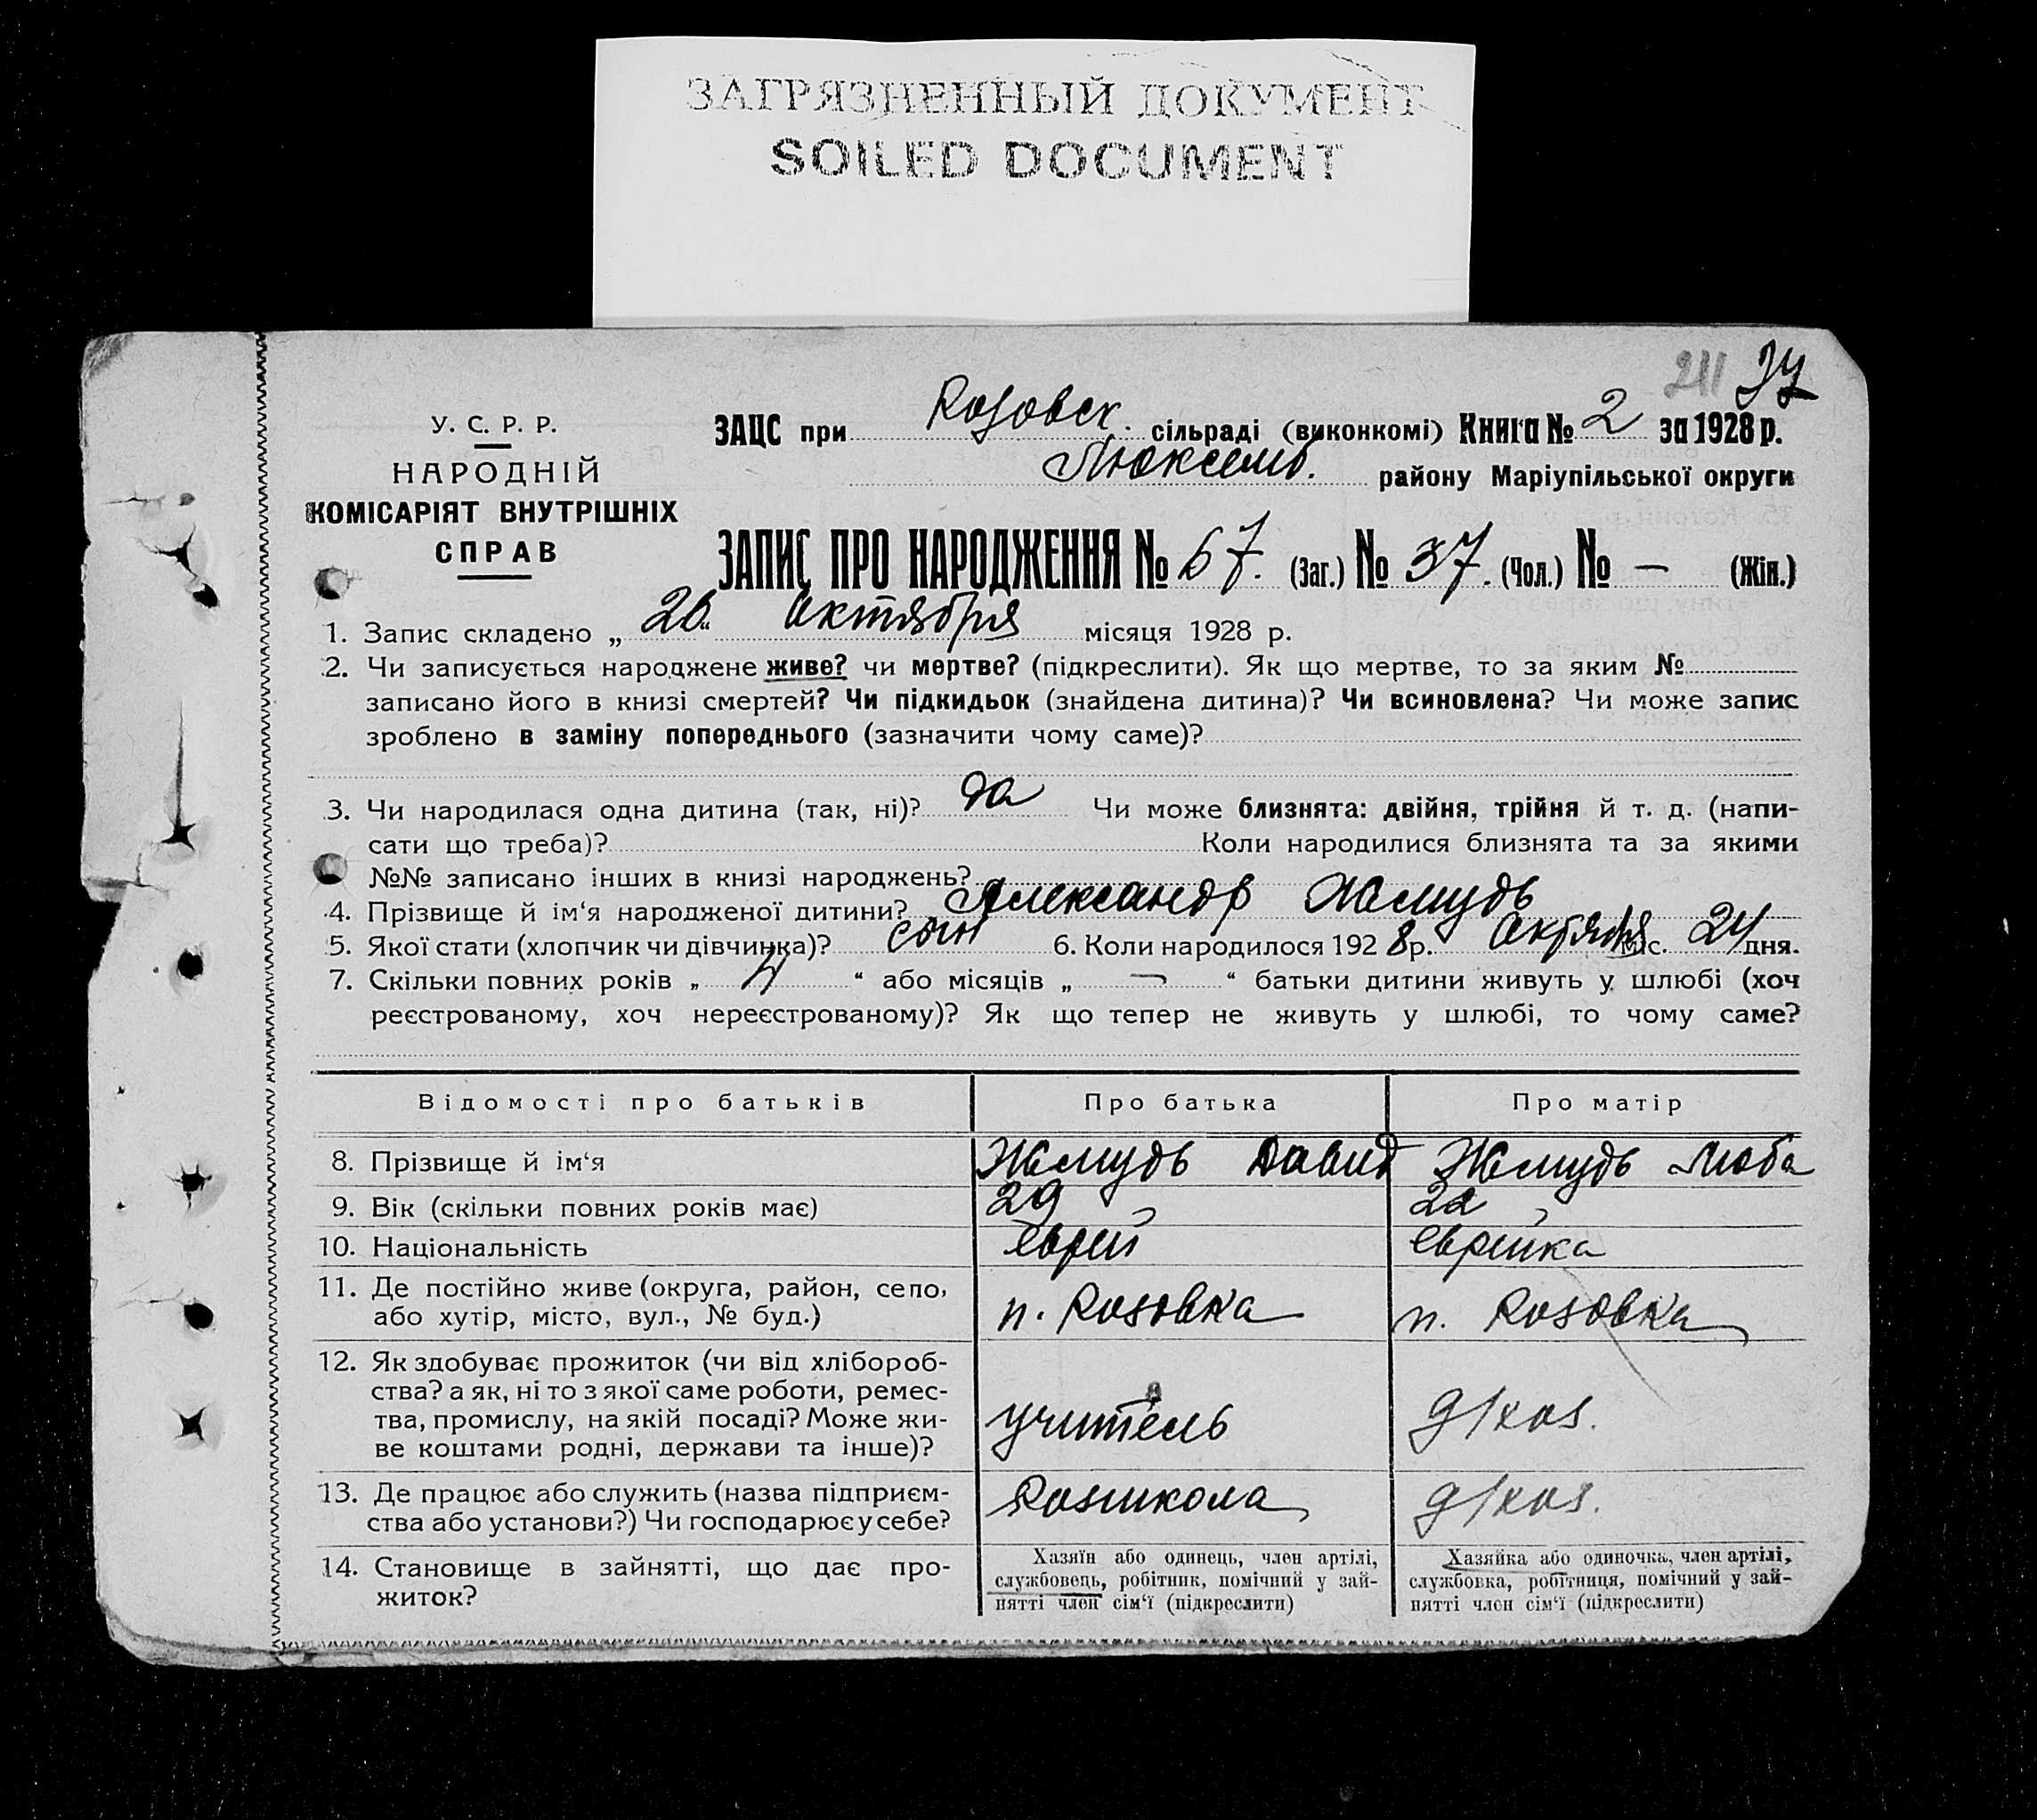 ЗАГРЯЗНЕННЫЙ ДОКУМЕНТ
SOILED DOCUMENT
211 37
У. С. Р. Р.
НАРОДНІЙ
КОМІСАРІЯТ ВНУТРІШНІХ
СПРАВ
ЗАЦС при Rозовск. сільраді (виконкомі) Книга № 2 за 1928 р.
Люксемб. району Маріупільської округи
ЗАПИС ПРО НАРОДЖЕННЯ № 67. (Заг.) № 37. (Чол.) № — (Жін.)
1. Запис складено „ 26 “ октября місяця 1928 р.
2. Чи записується народжене живе? чи мертве? (підкреслити). Як що мертве, то за яким №
записано його в книзі смертей? Чи підкидьок (знайдена дитина)? Чи всиновлена? Чи може запис
зроблено в заміну попереднього (зазначити чому саме)?
3. Чи народилася одна дитина (так, ні)? да Чи може близнята: двійня, трійня й т. д. (напи-
сати що треба)? Коли народилися близнята та за якими
№№ записано інших в книзі народжень?
4. Прізвище й ім‘я народженої дитини? Александр Жмудь
5. Якої стати (хлопчик чи дівчинка)? сын 6. Коли народилося 192 8 р. Октября міс. 24 дня.
7. Скільки повних років „ 4 “ або місяців „ — “ батьки дитини живуть у шлюбі (хоч
реєстрованому, хоч нереєстрованому)? Як що тепер не живуть у шлюбі, то чому саме?
Відомості про батьків Про батька Про матір
8. Прізвище й ім‘я Жмудь Давид Жмудь Люба
9. Вік (скільки повних років має) 29 22
10. Національність Еврей еврейка
11. Де постійно живе (округа, район, село,
або хутір, місто, вул., № буд.) п. Rозовка п. Rозовка
12. Як здобуває прожиток (чи від хлібороб-
ства? а як, ні то з якої саме роботи, ремес-
тва, промислу, на якій посаді? Може жи-
ве коштами родні, держави та інше)? учитель д/хоз.
13. Де працює або служить (назва підприєм-
ства або установи?) Чи господарює у себе? Rозшкола д/хоз.
14. Становище в зайнятті, що дає про-
житок?
Хазяїн або одинець, член артілі,
службовець, робітник, помічний у зай-
нятті член сім‘ї (підкреслити)
Хазяйка або одиночка, член артілі,
службовка, робітниця, помічний у зай-
нятті член сім‘ї (підкреслити)